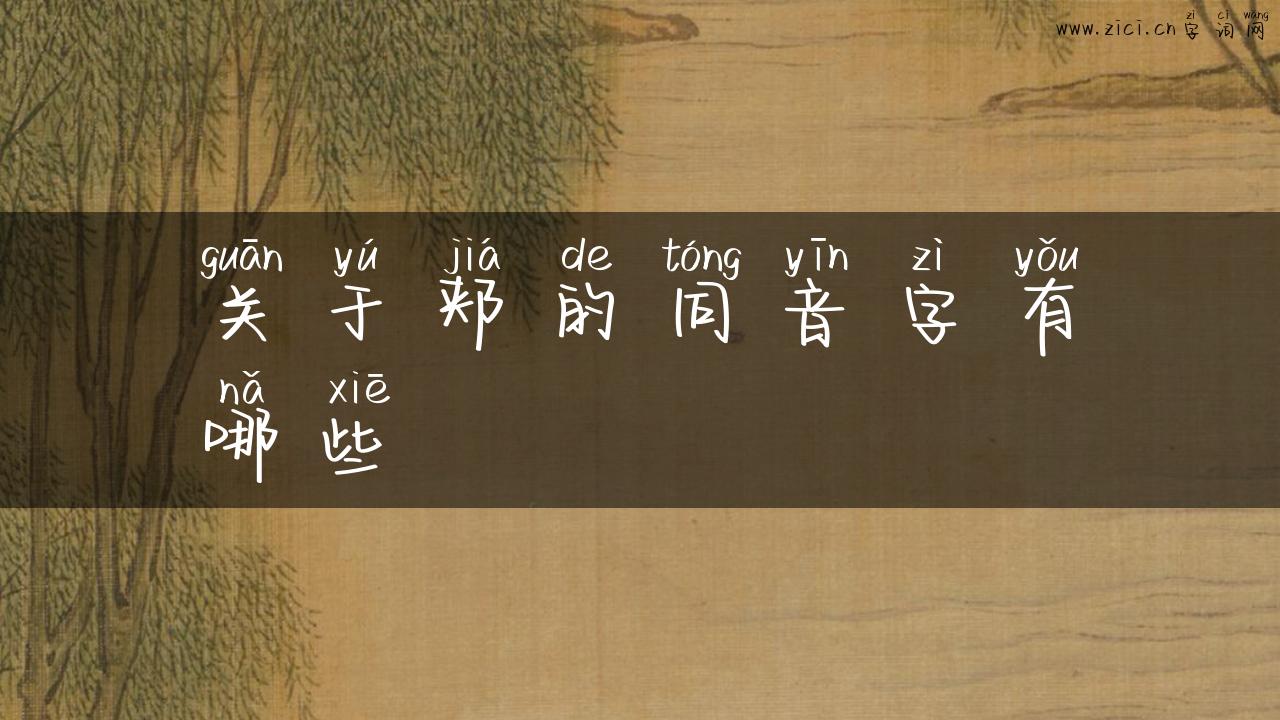 zì cí wǎng
www.zici.cn字词网
guān yú jiá de tóng yīn zì yǒu
关于郏的同音字有
nǎ xiē
哪些